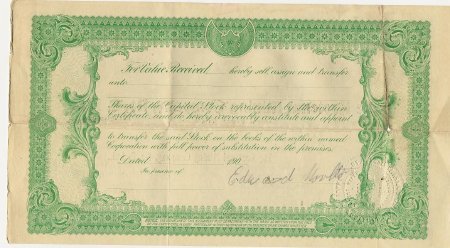 For Value Received, hereby sell, assign and transfer
unto
Shares of the Capital Stock represented by the within
Certificate, and do hereby irrevocably constitute and appoint
to transfer the said Stock on the books of the within named
Corporation with full power of substitution in the premises.
Dated 190
In presence of
Edward